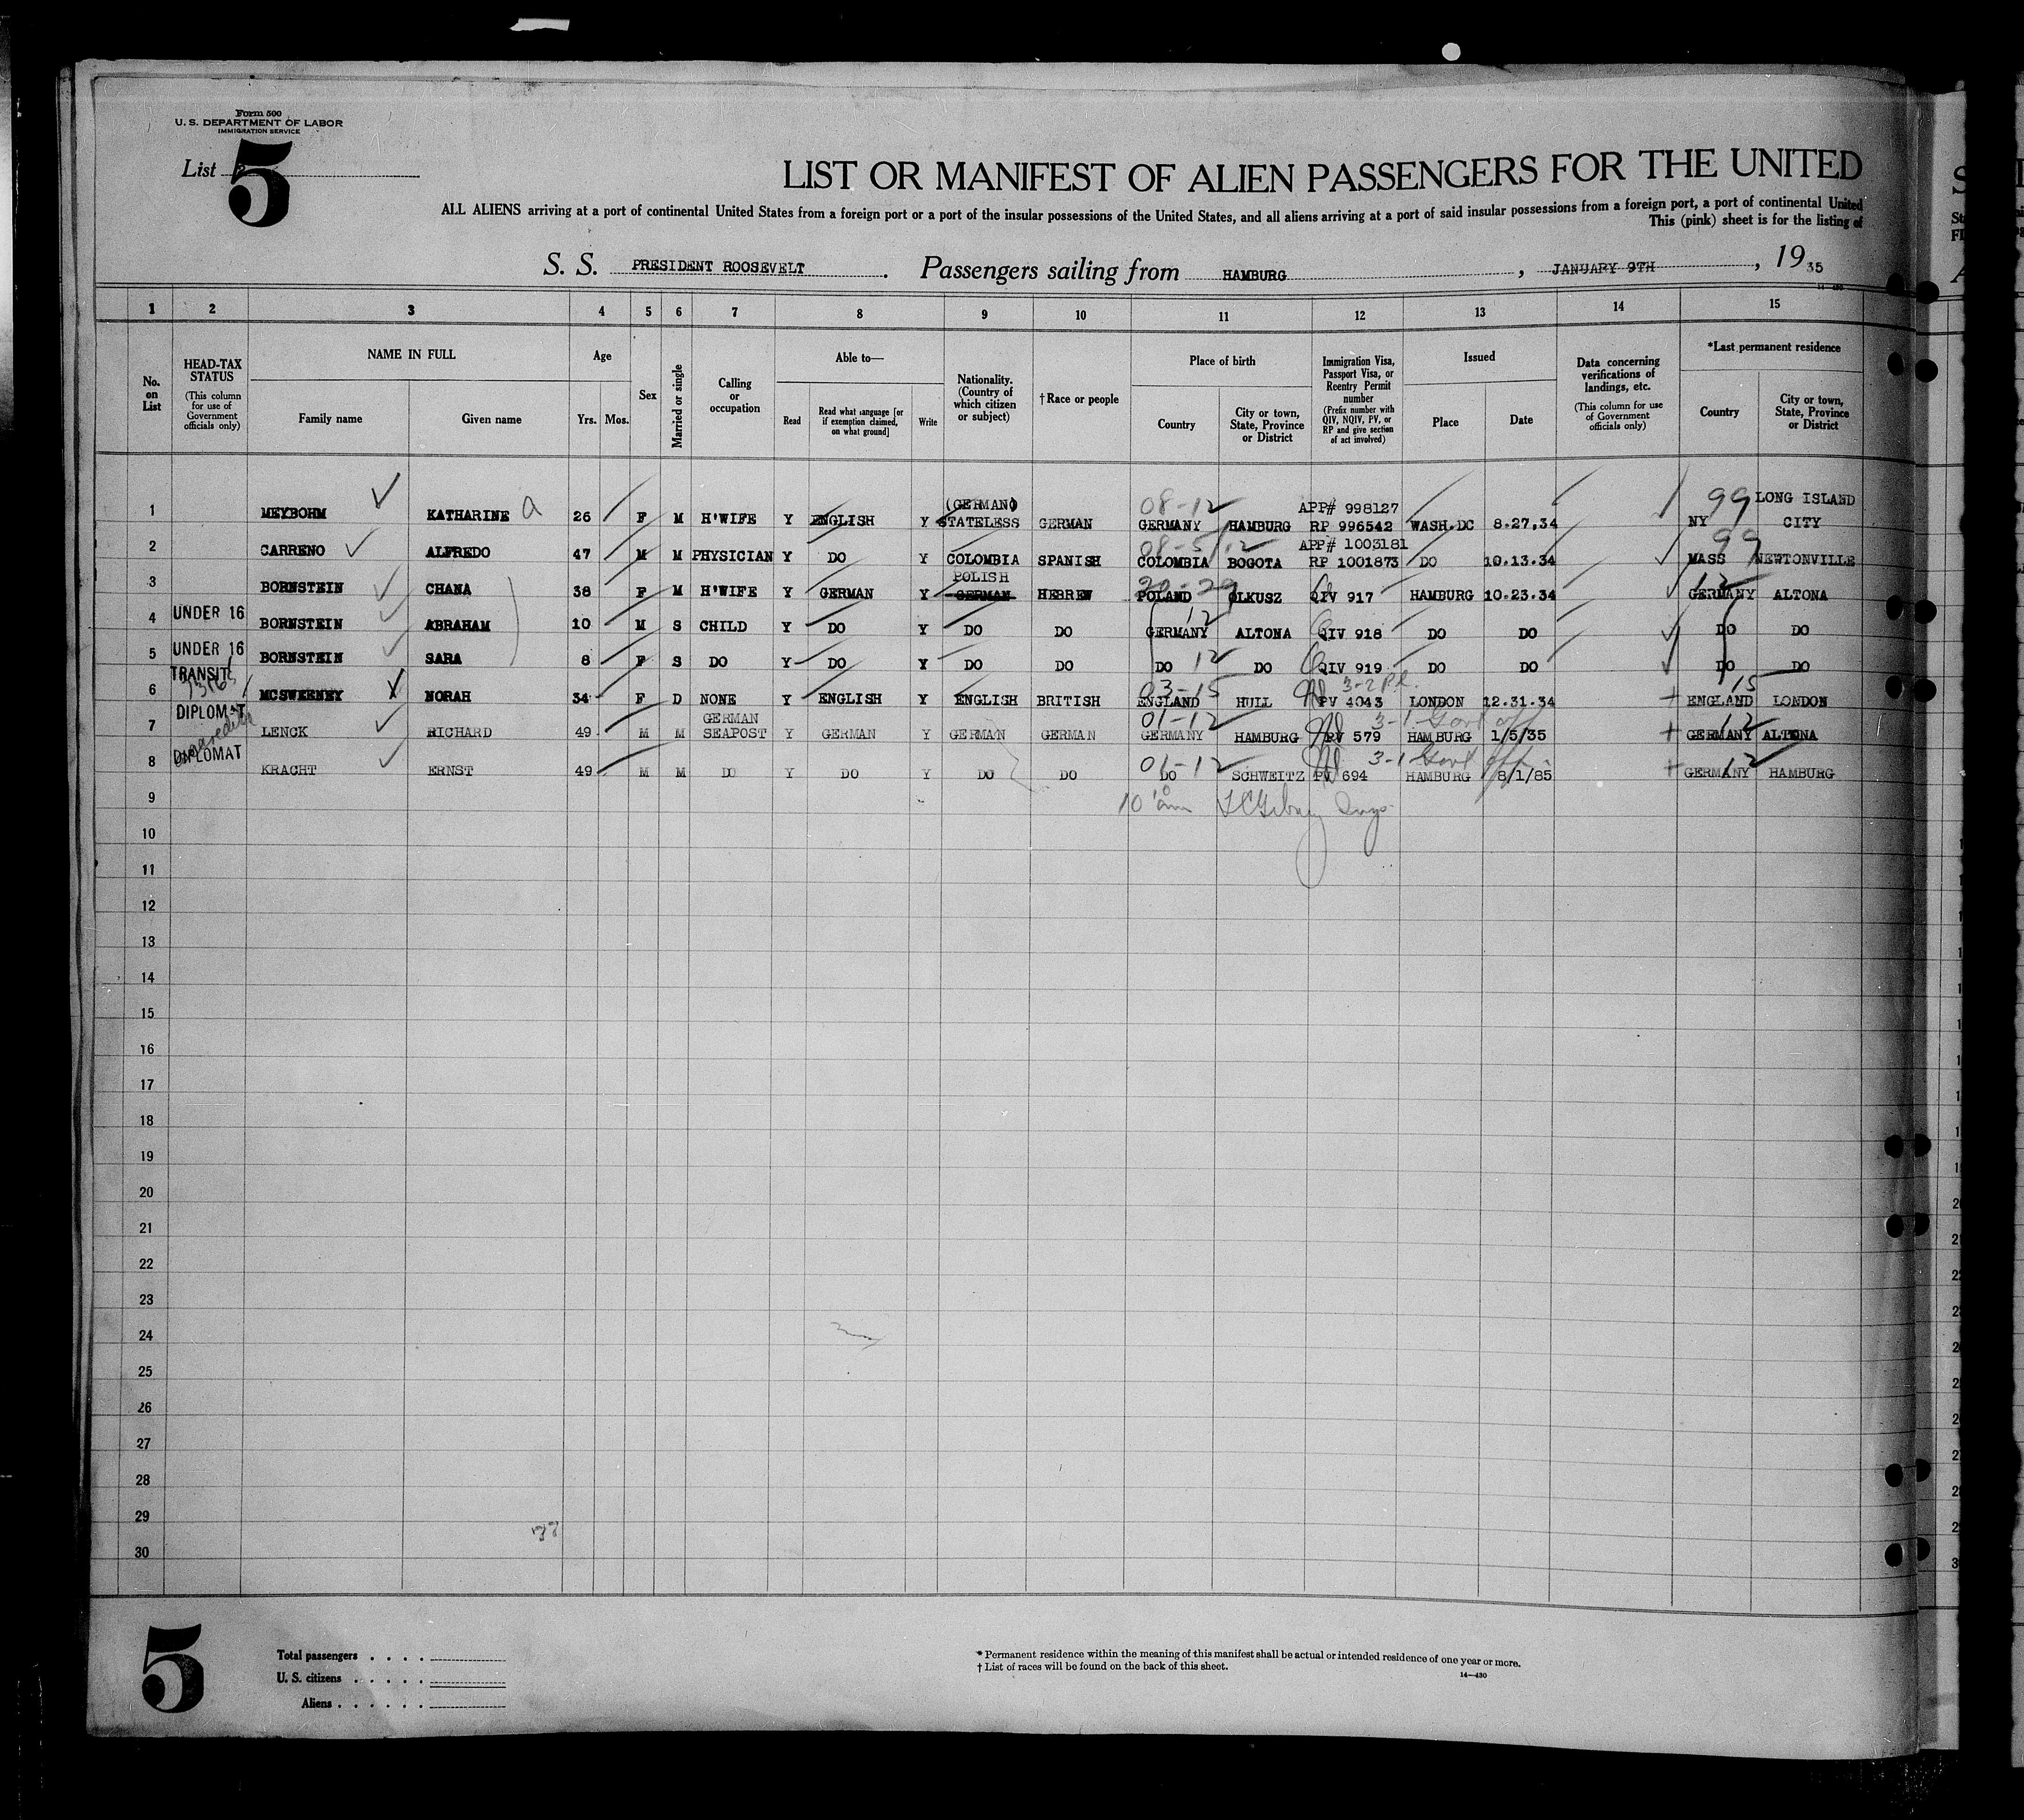 Form 500
U. S. DEPARTMENT OF LABOR
IMMIGRATION SERVICE
List 5
LIST OR MANIFEST OF ALIEN PASSENGERS FOR THE UNITED
ALL ALIENS arriving at a port of continental United States from a foreign port or a port of the insular possessions of the United States, and all aliens arriving at a port of said insular possessions from a foreign port, a port of continental United
This (pink) sheet is for the listing of
S. S. PRESIDENT ROOSEVELT. Passengers sailing from HAMBURG, JANUARY 9TH, 1935
1 2 3 4 5 6 7 8 9 10 11 12 13 14 15
No. on List
HEAD-TAX STATUS (This column for use of Government officials only)
NAME IN FULL Family name Given name
Age Yrs. Mos.
Sex
Married or single
Calling or occupation
Able to— Read Read what language [or if exemption claimed, on what ground] Write
Nationality. (Country of which citizen or subject)
†Race or people
Place of birth Country City or town, State, Province or District
Immigration Visa, Passport Visa, or Reentry Permit number (Prefix number with QIV, NQIV, PV, or RP and give section of act involved)
Issued Place Date
Data concerning verifications of landings, etc. (This column for use of Government officials only)
*Last permanent residence Country City or town, State, Province or District
(GERMAN) 08-12 APP# 998127 99 LONG ISLAND
1 MEYBOHM KATHARINE a 26 F M H'WIFE Y ENGLISH Y STATELESS GERMAN GERMANY HAMBURG RP 996542 WASH.DC 8.27,34 NY CITY
08-5 12 APP# 1003181 99
2 CARRENO ALFREDO 47 M M PHYSICIAN Y DO Y COLOMBIA SPANISH COLOMBIA BOGOTA RP 1001873 DO 10.13.34 MASS NEWTONVILLE
POLISH 20-29 12
3 BORNSTEIN CHANA 38 F M H'WIFE Y GERMAN Y GERMAN HEBREW POLAND OLKUSZ QIV 917 HAMBURG 10.23.34 GERMANY ALTONA
12
4 UNDER 16 BORNSTEIN ABRAHAM 10 M S CHILD Y DO Y DO DO GERMANY ALTONA QIV 918 DO DO DO DO
5 UNDER 16 BORNSTEIN SARA 8 F S DO Y DO Y DO DO DO 12 DO QIV 919 DO DO DO DO
TRANSIT 03-15 3-2 15
6 MCSWEENEY NORAH 34 F D NONE Y ENGLISH Y ENGLISH BRITISH ENGLAND HULL PV 4043 LONDON 12.31.34 ENGLAND LONDON
DIPLOMAT GERMAN 01-12 3-1 Govt off 12
7 LENCK RICHARD 49 M M SEAPOST Y GERMAN Y GERMAN GERMAN GERMANY HAMBURG PV 579 HAMBURG 1/5/35 GERMANY ALTONA
DIPLOMAT 01-12 3-1 Govt off 12
8 KRACHT ERNST 49 M M DO Y DO Y DO DO DO SCHWEITZ PV 694 HAMBURG 8/1/85 GERMANY HAMBURG
9
10
11
12
13
14
15
16
17
18
19
20
21
22
23
24
25
26
27
28
29
30
5
Total passengers
U. S. citizens
Aliens
* Permanent residence within the meaning of this manifest shall be actual or intended residence of one year or more.
† List of races will be found on the back of this sheet.
14—430